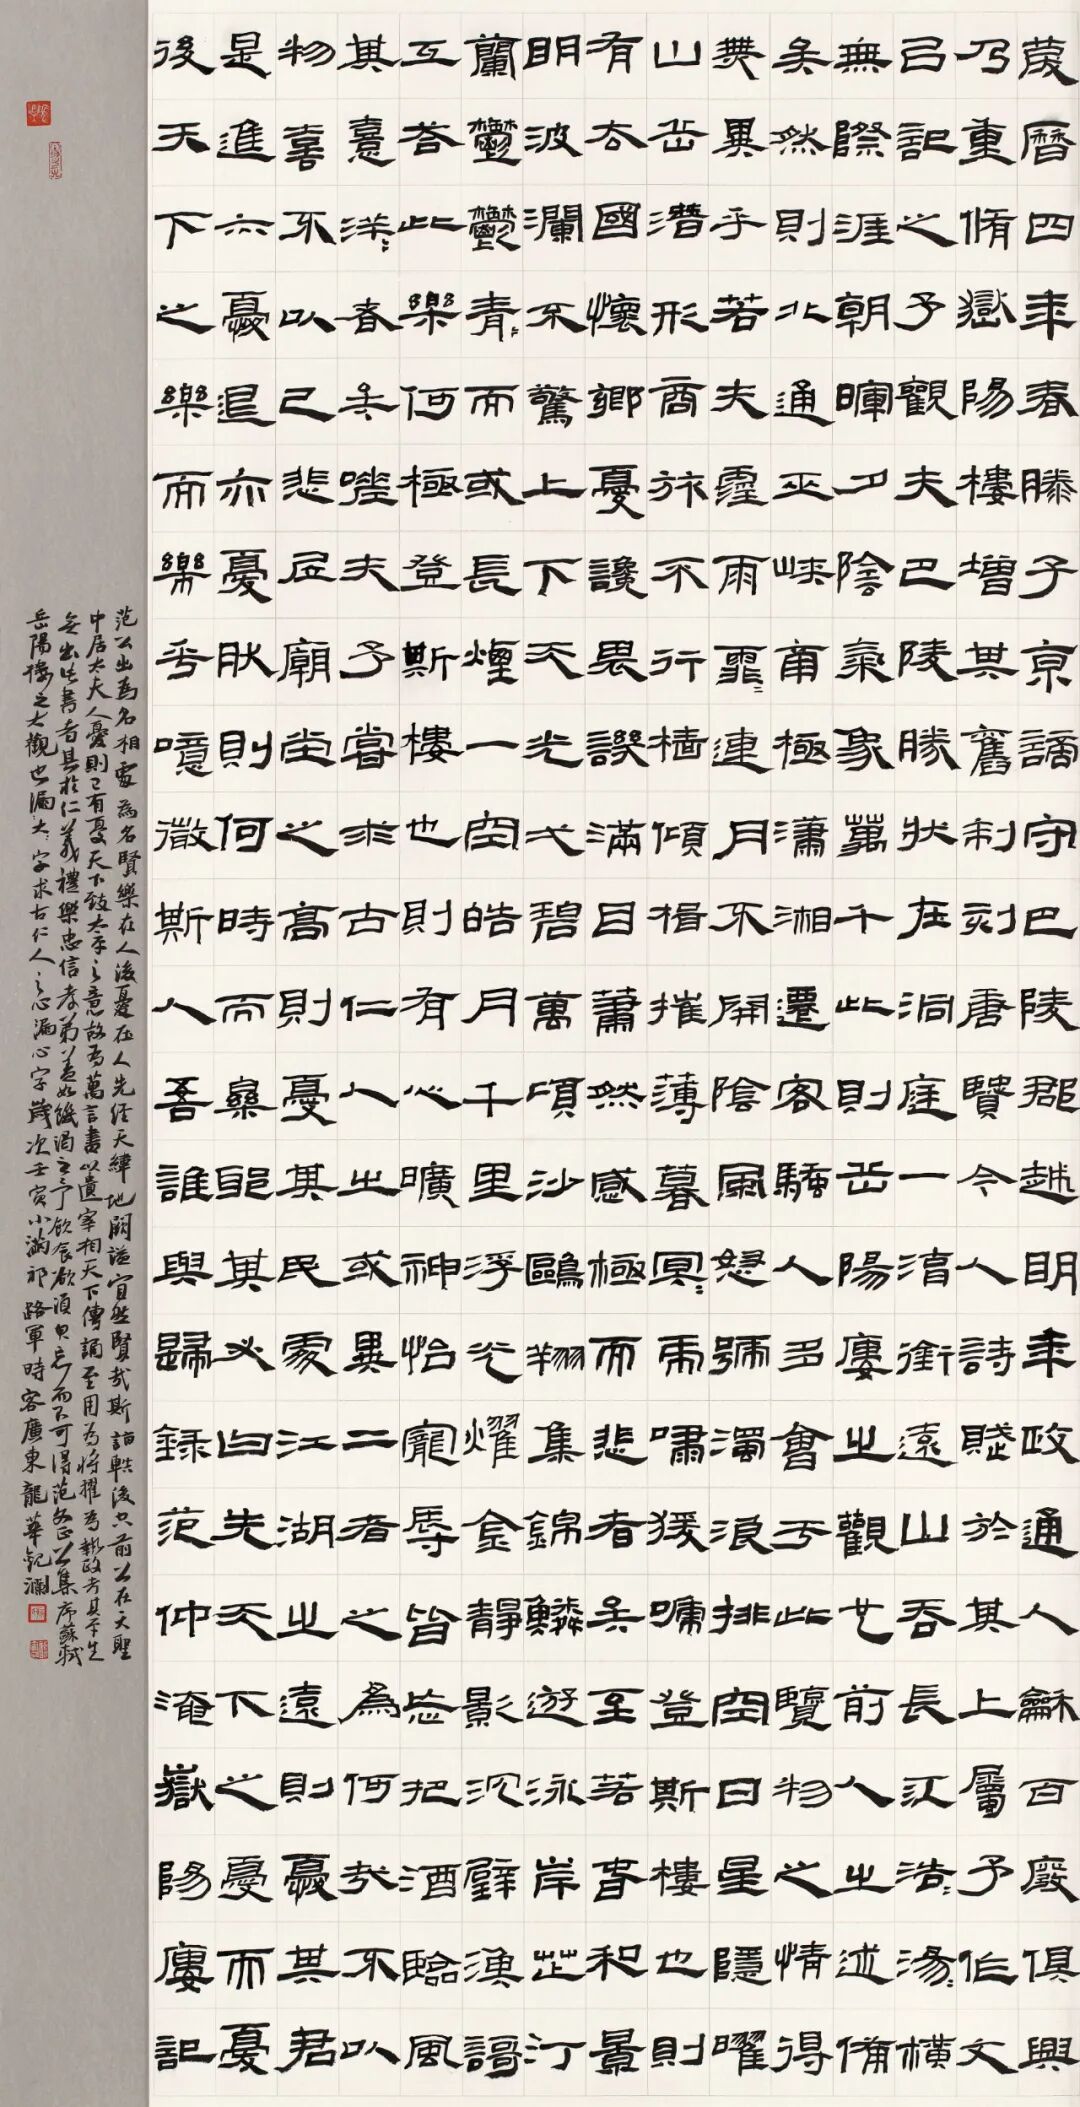 慶曆四年春滕子京謫守巴陵郡越明年政通人龢百廢俱興
乃重脩嶽陽樓增其舊制刻唐賢今人詩賦於其上屬予作文
㠯記之予觀夫巴陵勝狀在洞庭一湖銜遠山吞長江浩〻湯〻橫
無際涯朝暉夕陰氣象萬千此則岳陽樓之觀也前人之述備
矣然則北通巫峽南極瀟湘遷客騷人多會于此覽物之情得
無異乎若夫霪雨霏〻連月不開陰風怒號濁浪排空日星隱曜
山岳潛形商旅不行檣傾楫摧薄暮冥〻虎嘯猨啼登斯樓也則
有去國懷鄉憂讒畏譏滿目蕭然感極而悲者矣至若春和景
明波瀾不驚上下天光一碧萬頃沙鷗翔集錦鱗遊泳岸芷汀
蘭鬱鬱青〻而或長煙一空皓月千里浮光耀金靜影沉璧漁謌
互答此樂何極登斯樓也則有心曠神怡寵辱皆忘把酒臨風
其憙洋〻者矣嗟夫予嘗求古仁人之或異二者之為何哉不以
物喜不以己悲居廟堂之高則憂其民處江湖之遠則憂其君
是進亦憂退亦憂然則何時而樂耶其必曰先天下之憂而憂
後天下之樂而樂乎噫微斯人吾誰與歸錄范仲淹嶽陽樓記
范公出為名相處為名賢樂在人後憂在人先經天緯地闕謚宜然賢哉斯詣軼後空前公在天聖
中居太夫人憂則已有憂天下致太平之意故為萬言書以遺宰相天下傳誦至用為將擢為執政考其平生
無出此書者其於仁義禮樂忠信孝弟蓋如饑渴之於飲食欲須臾忘而不可得范文正公集序蘇軾
岳陽樓之大觀也漏大字求古仁人之心漏心字歲次壬寅小滿祁路軍時客廣東龍華觀瀾